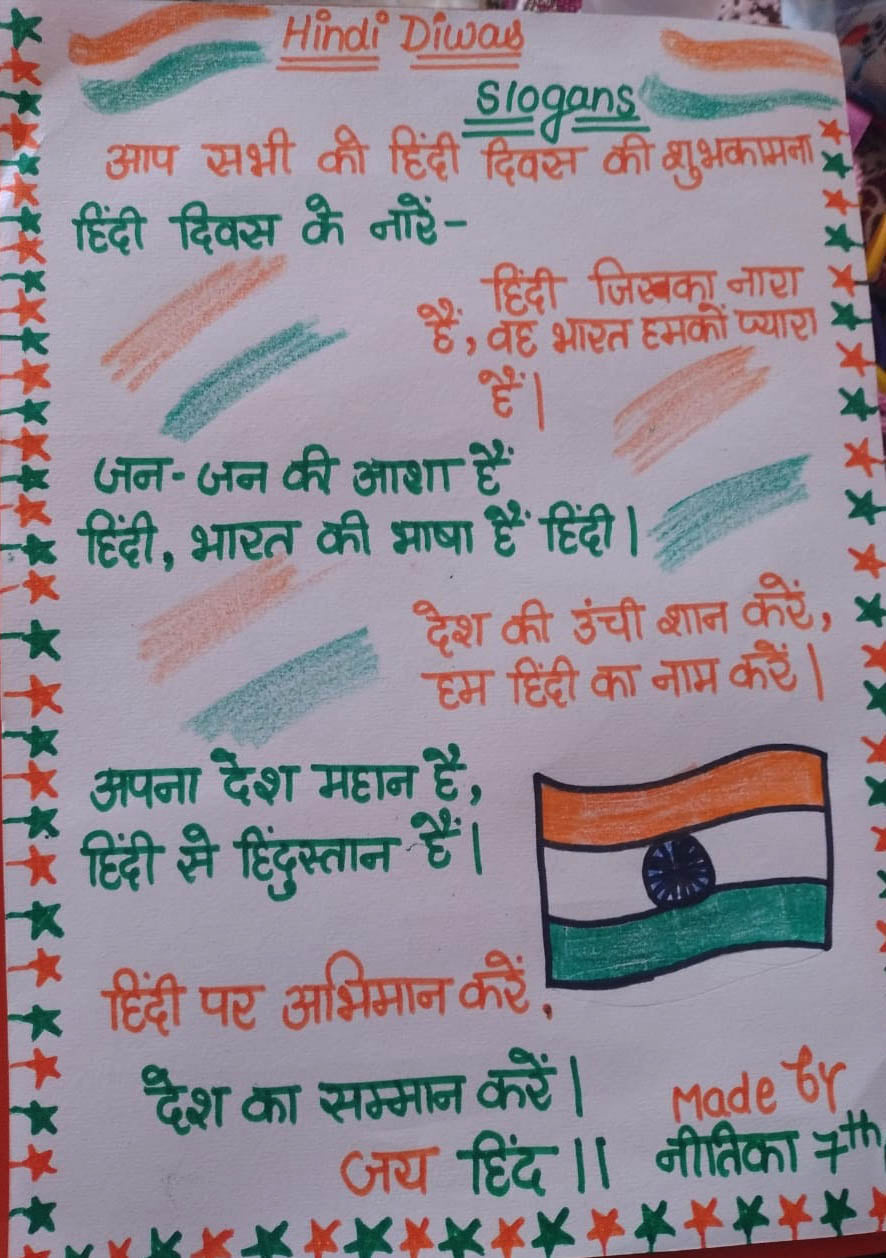 Hindi Diwas
Slogans
आप सभी को हिंदी दिवस की शुभकामना
हिंदी दिवस के नारें-
हिंदी जिसका नारा
हैं, वह भारत हमकों प्यारा
हैं।
जन-जन की आशा हैं
हिंदी, भारत की भाषा हैं हिंदी।
देश की उंची शान करें,
हम हिंदी का नाम करें।
अपना देश महान है,
हिंदी से हिंदुस्तान हैं।
हिंदी पर अभिमान करें,
देश का सम्मान करें।
जय हिंद॥
Made by
नीतिका 7th